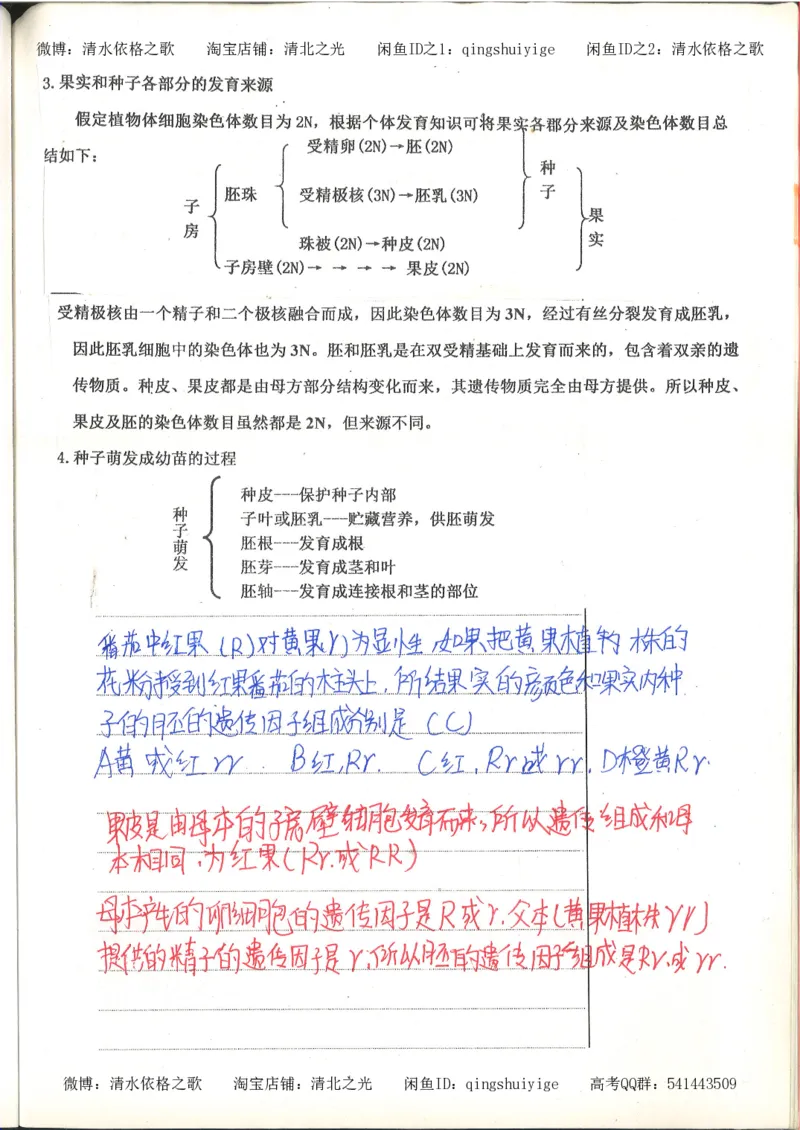 微博：清水依格之歌 淘宝店铺：清北之光 闲鱼ID之1：qingshuiyige 闲鱼ID之2：清水依格之歌
3.果实和种子各部分的发育来源
假定植物体细胞染色体数目为2N，根据个体发育知识可将果实各部分来源及染色体数目总
结如下：
受精卵(2N)→胚(2N)
胚珠 受精极核(3N)→胚乳(3N) 种子
子房 果实
珠被(2N)→种皮(2N)
子房壁(2N)→ → → → 果皮(2N)
受精极核由一个精子和二个极核融合而成，因此染色体数目为3N，经过有丝分裂发育成胚乳，
因此胚乳细胞中的染色体也为3N。胚和胚乳是在双受精基础上发育而来的，包含着双亲的遗
传物质。种皮、果皮都是由母方部分结构变化而来，其遗传物质完全由母方提供。所以种皮、
果皮及胚的染色体数目虽然都是2N，但来源不同。
4.种子萌发成幼苗的过程
种子萌发
种皒---保护种子内部
子叶或胚乳---贮藏营养，供胚萌发
胚根---发育成根
胚芽---发育成茎和叶
胚轴---发育成连接根和茎的部位
番茄中红果（R)对黄果r)为显性，如果把黄果植物 株的
花粉授到红果番茄的柱头上，所结果实的颜色和果实内种
子的胚的遗传因子组成分别是（C）
A黄或红rr. B红,Rr. C红，Rr或rr. D橙黄Rr.
果皮是由母本的子房壁细胞发育而来，所以遗传组成和母
本相同，为红果(Rr.或RR)
母本产生的卵细胞的遗传因子是R或r.父本(黄果植株rr)
提供的精子的遗传因子是r,所以胚的遗传因子组成是Rr.或rr.
微博：清水依格之歌 淘宝店铺：清北之光 闲鱼ID：qingshuiyige 高考QQ群：541443509